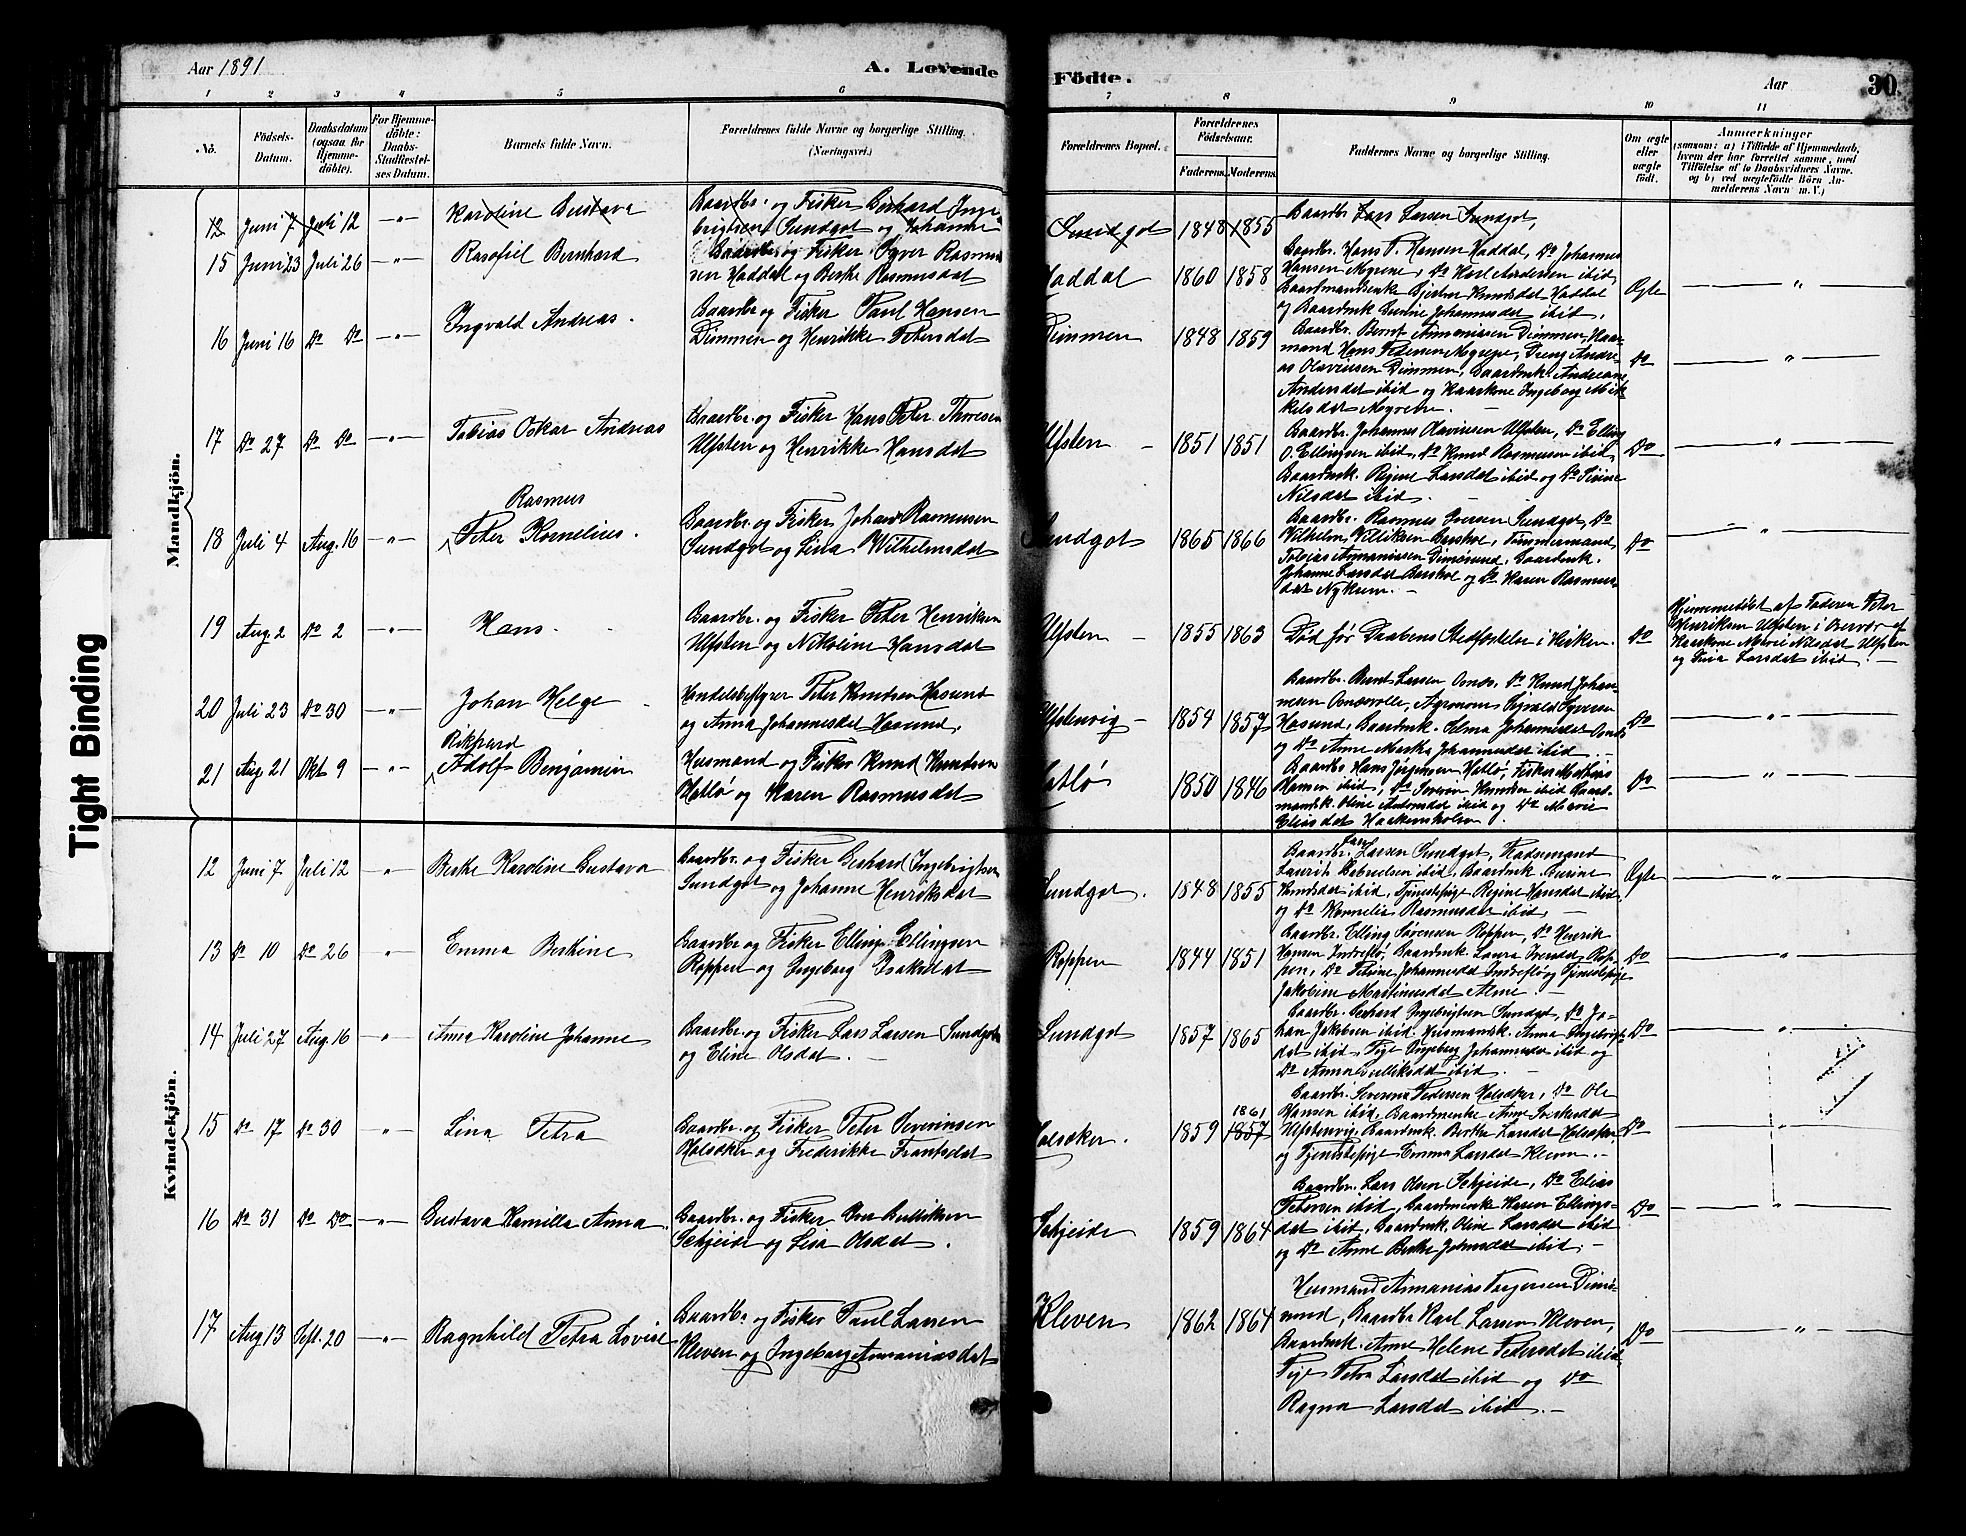 Aar 1891
A. Levende
Födte.
Aar
30
1 2 3 4 5 6 7 8 9 10 11
No.
Födsels-
Datum.
Daabsdatum
(ogsaa for
Hjemme-
döbte).
For Hjemme-
döbte:
Daabs-
Stadfæstel-
ses Datum.
Barnets fulde Navn.
Forældrenes fulde Navne og borgerlige Stilling.
(Næringsvei.)
Forældrenes Bopæl.
Forældrenes
Födselsaar.
Faderens. Moderens.
Faddernes Navne og borgerlige Stilling.
Om ægte
eller
uægte
födt.
Anmærkninger
(saasom: a) i Tilfælde af Hjemmedaab,
hvem der har forrettet samme, med
Tilföielse af to Daabsvidners Navne,
og b) ved uægtefödte Börn An-
melderens Navn m. V.)
Tight Binding
Mandkjön.
12 Juni 7 Juli 12 -"- Karoline Gustava
Gaardbr. og Fisker Gerhard Inge-
brigtsen Sundgot og Johanne
Sundgot 1848 1855
Gaardbr. Lars Larsen Sundgot,
15 Juni 23 Juli 26 -"- Rasofiel Bernhard
Gaardbr. og Fisker Ogver Rasmus-
sen Haddal og Berthe Rasmusdat
Haddal 1860 1858
Gaardbr. Hans P. Hansen Haddal, Do Johannes
Hansen Myrene, Do Karl Andersen ibid,
Gaardmandsenke Gjertine Knudsdat Haddal
og Gaardmk. Johannesdat ibid.
Ægte "
16 Juni 16 Do Do -"- Ingvald Andreas.
Gaardbr. og Fisker Paul Hansen
Dimmen og Henrikke Petersdat
Dimmen 1848 1859
Gaardbr. Bernt Annaniassen Dimmen, Kaar-
mand Hans Petersen Myrene, Dreng Andre-
as Olaviussen Dimmen, Gaardmk. Andreane
Andersdat ibid og Kaarkone Ingeborg Mik-
kelsdat Myrene. -
Do "
17 Do 27 Do Do -"- Tobias Oskar Andreas
Gaardbr. og Fisker Hans Peter Thoresen
Ulfsten og Henrikke Hansdat
Ulfsten - 1851 1851
Gaardbr. Johannes Olaviusen Ulfsten, Do Elling
O. Ellingsen ibid, Do Knud Rasmusen ibid,
Gaardmk. Regine Larsdat ibid og Do Sirine
Nilsdat ibid.
Do "
18 Juli 4 Aug. 16 -"- Rasmus
Peter Kornelius.
Gaardbr. og Fisker Johan Rasmusen
Sundgot og Lina Wilhelmsdat
Sundgot 1865 1866
Gaardbr. Rasmus Iversen Sundgot, Do
Wilhelm Villiksen Garshol, Tømmermand
Tobias Annaniassen Dimmsund, Gaardmk.
Johanne Larsdat Garshol og Do Karen Rasmus-
dat Nykrem. -
Do "
19 Aug. 2 Do 2 -"- Hans.
Gaardbr. og Fisker Peter Henriksen
Ulfsten og Nikoline Hansdat
Ulfsten - 1855 1863
Død før Daabens Stadfæstelse i Kirken.
Do
Hjemmedøbt af Faderen Peter
Henriksen Ulfsten i Overvær af
Kaarkone Marie Nilsdat Ulfsten
og Lina Larsdat ibid. -
20 Juli 23 Do 30 -"- Johan Helge
Handelsbestyrer Peter Knudsen Hasund
og Anna Johannesdat Hasund.
Ulfstenvig - 1854 1857
Gaardbr. Bernt Larsen Osnes, Do Knud Johan-
nesen Osnesvolle, Agronom Sigvald Syversen
Hasund, Gaardmk. Selma Johannesdat Osnes
og Do Anne Marthe Johannesdat ibid.
Do "
21 Aug. 21 Okt 9 -"- Rikhard
Adolf Benjamin
Husmand og Fisker Knud Knudsen
Hatlø og Karen Rasmusdat
Hatlø 1850 1846
Gaardbr. Hans Jørgensen Hatlø, Fisker Mathias
Hansen ibid, Do Severin Knudsen ibid, Gaard-
mandsk. Oline Antonsdat ibid og Do Marie
Eliasdat Haakonsholm.
Do "
Kvindekjön.
12 Juni 7 Juli 12 -"- Berthe Karoline Gustava
Gaardbr. og Fisker Gerhard Ingebrigtsen
Sundgot og Johanne Henriksdat
Sundgot. 1848 1855
Gaardbr. Lars Larsen Sundgot, Kaarmand
Laurits Gabrielsen ibid, Gaardmk. Gurine
Knudsdat ibid, Tjenestepige Regine Hansdat ibid
og Do Kornelia Rasmusdat ibid. -
Ægte "
13 Do 10 Do 26 " Emma Berthine
Gaardbr. og Fisker Elling Ellingsen
Roppen og Ingeborg Isaksdat
Roppen 1844 1851
Gaardbr. Elling Sørensen Roppen, Do Henrik
Hansen Indreflø, Gaardmk. Laura Iversdat Rop-
pen, Do Petrine Johannesdat Indreflø og Tjenestepige
Jakobine Martinusdat Alme. -
Do "
14 Juli 27 Aug. 16 -"- Anna Karoline Johanne
Gaardbr. og Fisker Lars Larsen Sundgot
og Eline Olsdat. -
Sundgot 1857 1865
Gaardbr. Gerhard Ingebrigtsen Sundgot, Do Jo-
han Jakobsen ibid. Husmandsk. Anna Ingebrigts-
dat ibid, Pige Ingeborg Johannesdat ibid og
Do Anna Villiksdat ibid. -
Do "
15 Do 17 Do 30 " Lina Petra
Gaardbr. og Fisker Peter Severinsen
Holsæker og Frederikke Frantsdat
Holsæker. 1859 1861
1857
Gaardbr. Severin Pedersen Holsæker, Do Ole
Hansen ibid, Gaardmenke Anne Sverkesdat
Ulfstenvig, Gaardmk. Berthe Larsdat Holsæker
og Tjenestepige Emma Larsdat Kleven. -
Do "
16 Do 31 Do Do -"- Gustava Kamilla Anna
Gaardbr. og Fisker Ole Gulliksen
Schjeide og Lisa Olsdat.
Schjeide 1859 1864
Gaardbr. Lars Olsen Schjeide, Do Elias
Petersen ibid, Gaardmenke Karen Ellings-
dat ibid, Gaardmk. Oline Larsdat ibid
og Do Anne Berthe Johnsdat ibid. -
Do "
17 Aug. 13 Sept. 20 -"- Ragnhild Petra Lovise
Gaardbr. og Fisker Paul Larsen
Kleven og Ingeborg Annaniasdat
Kleven 1862 1864
Husmand Annanias Torgersen Dims-
sund, Gaardbr. Karl Larsen Kleven,
Gaardmk. Anne Helene Pedersdat ibid
Pige Petra Larsdat ibid og Do
Ragna Larsdat ibid. -
Do "